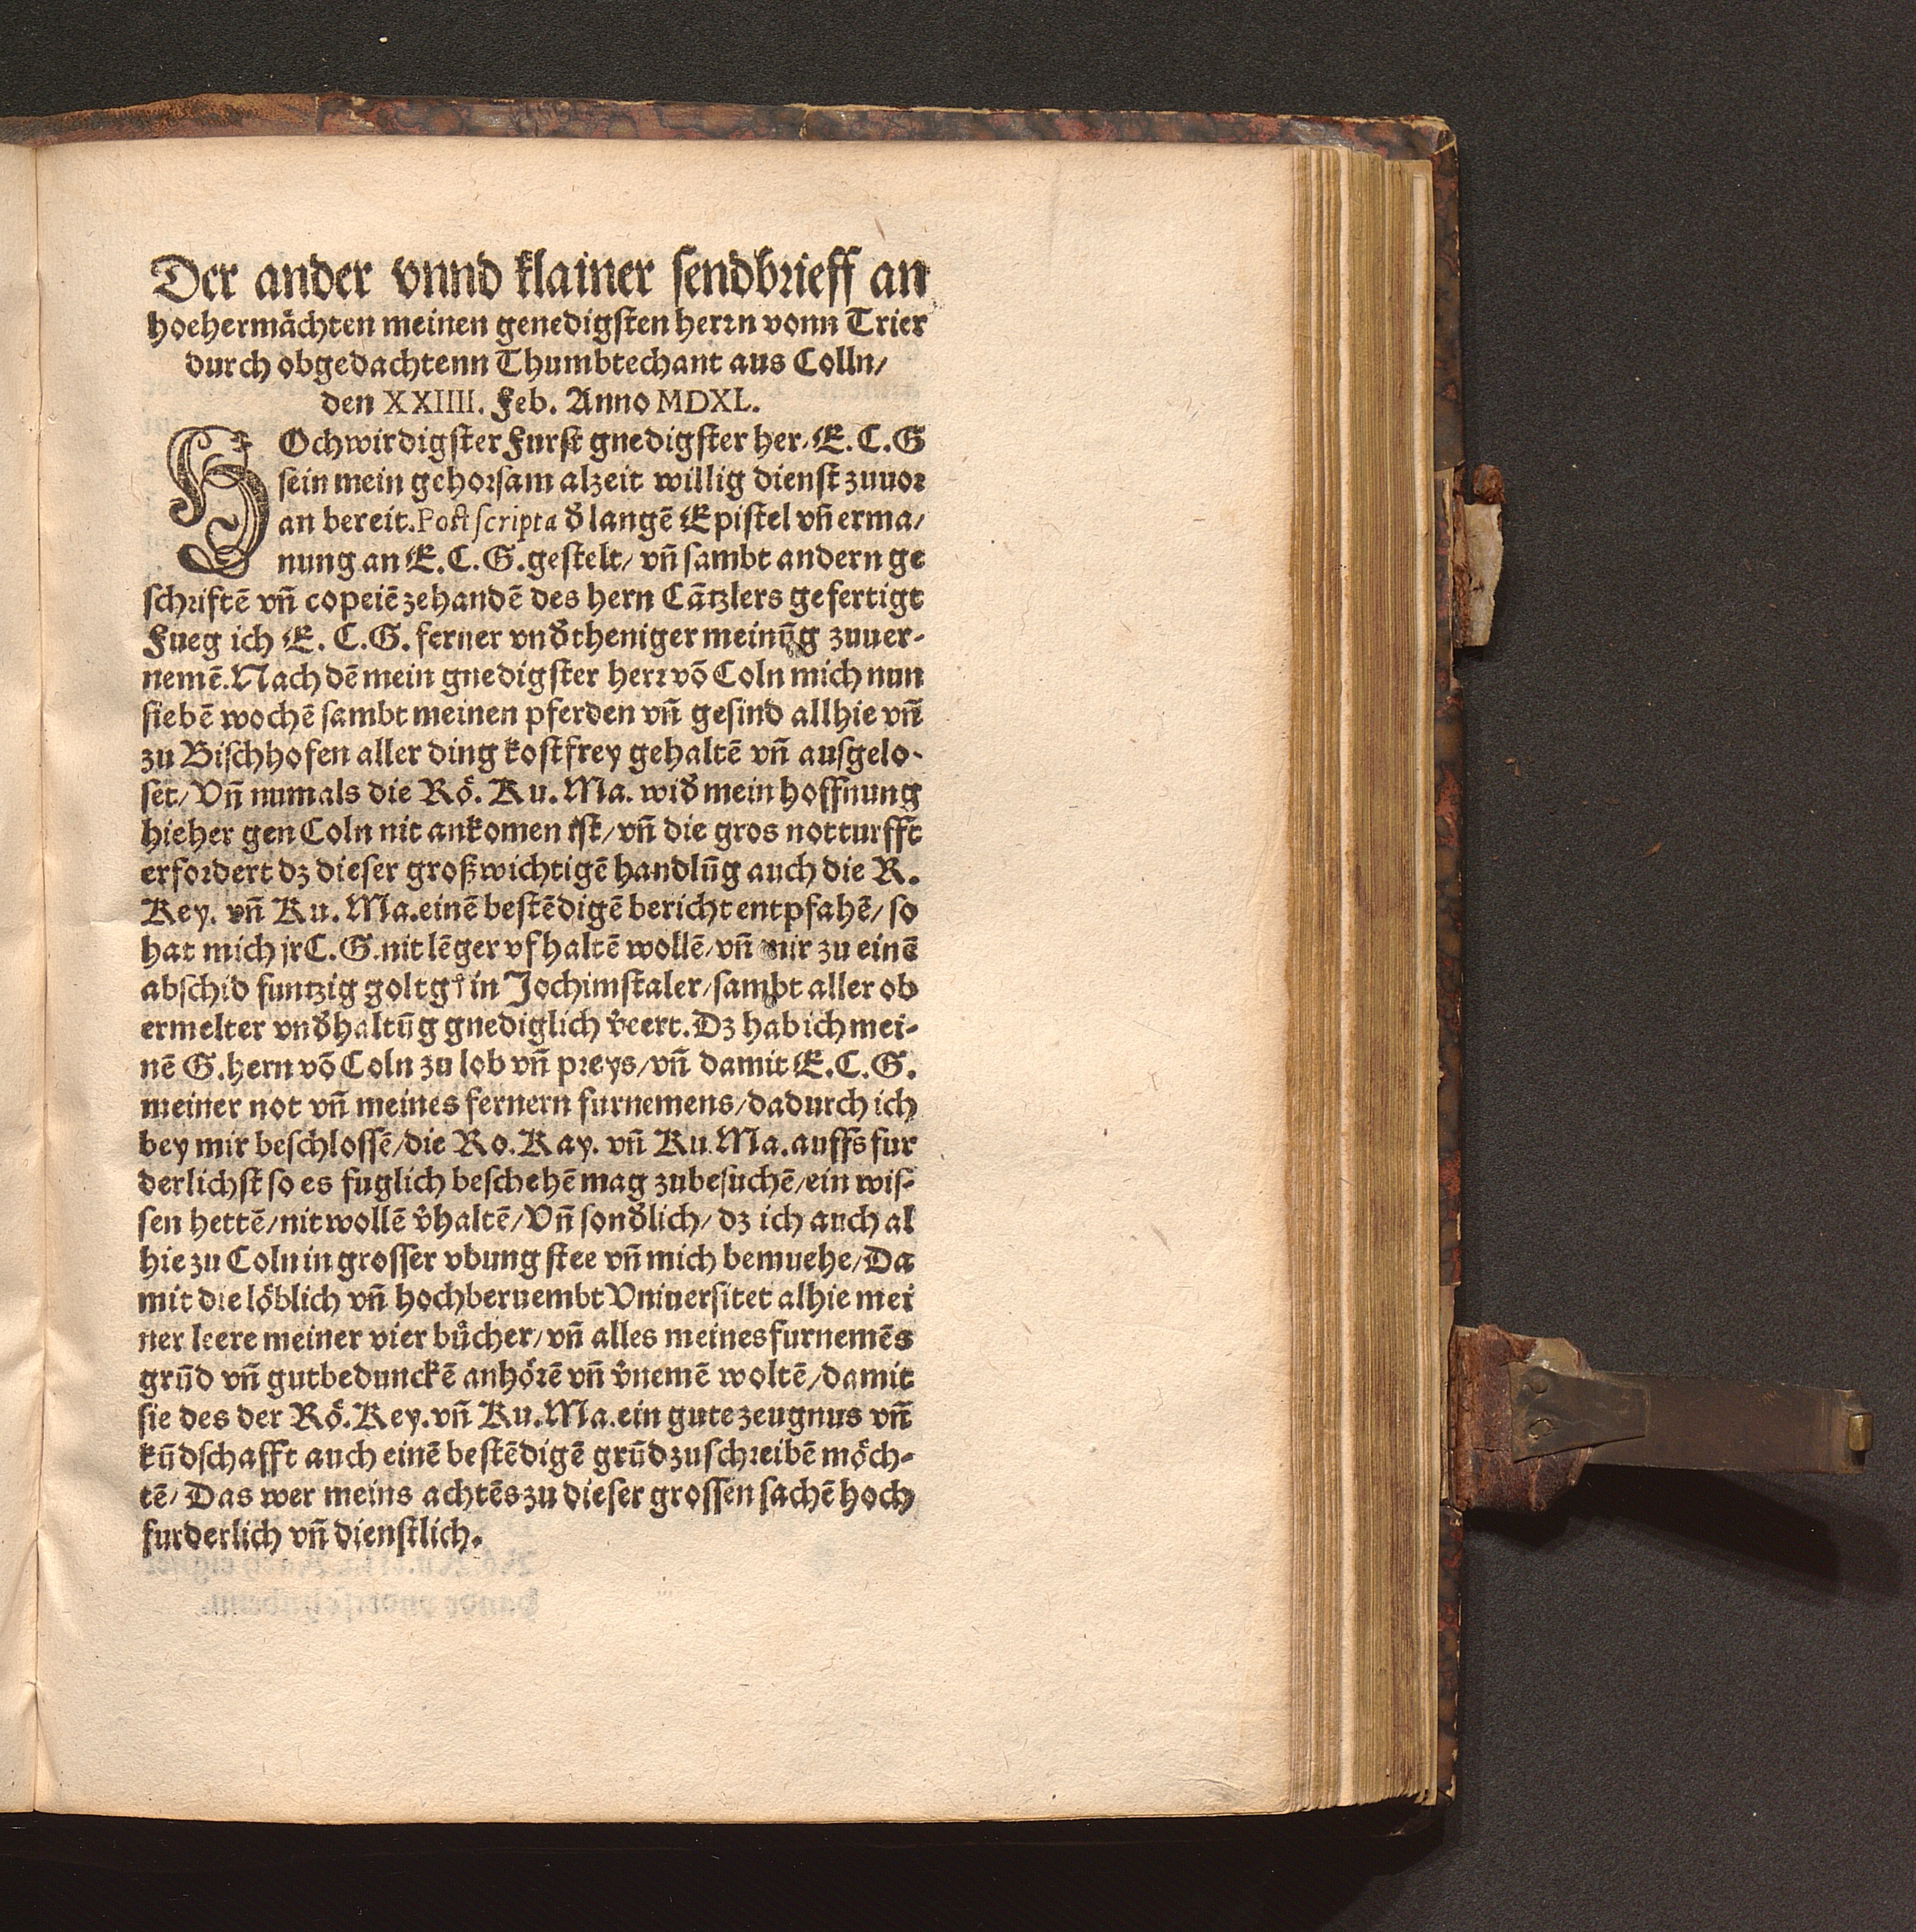 Der ander vnnd klainer sendbrieff an
hoehermächten meinen genedigsten herrn vonn Trier
durch obgedachtenn Thumbtechant aus Colln/
den XXIIII. Feb. Anno MDXL.
HOchwirdigster Furst gnedigster her/ E. C. G
sein mein gehorsam alzeit willig dienst zuuor
an bereit. Post scripta d̕ langē Epistel vn̄ erma/
nung an E. C. G. gestelt/ vn̄ sambt andern ge
schriftē vn̄ copeiē zehandē des hern Cātzlers gefertigt
Fueg ich E. C. G. ferner vnd̕theniger meinūg zuuer-
nemē. Nach dē mein gnedigster herr vō Coln mich nun
siebē wochē sambt meinen pferden vn̄ gesind allhie vn̄
zu Bischhofen aller ding kostfrey gehaltē vn̄ ausgelo-
set/ Vn̄ numals die Rö. Ku. Ma. wid̕ mein hoffnung
hieher gen Coln nit ankomen ist/ vn̄ die gros notturfft
erfordert dz dieser großwichtigē handlūg auch die R.
Key. vn̄ Ku. Ma. einē bestēdigē bericht entpfahē/ so
hat mich jr C. G. nit lēger vfhaltē wollē/ vn̄ mir zu einē
abschid funtzig goltg in Jochimstaler/ sambt aller ob
ermelter vnd̕haltūg gnediglich v̕eert. Dz hab ich mei-
nē G. hern vō Coln zu lob vn̄ preys/ vn̄ damit E. C. G.
meiner not vn̄ meines fernern furnemens/ dadurch ich
bey mir beschlossē/ die Ro. Kay. vn̄ Ku. Ma. auffs fur
derlichst so es fuglich beschehē mag zubesuchē/ ein wis-
sen hettē/ nit wollē v̕haltē/ Vn̄ sond̕lich/ dz ich auch al
hie zu Coln in grosser vbung stee vn̄ mich bemuehe/ Da
mit die löblich vn̄ hochberuembt Vniuersitet alhie mei
ner leere meiner vier bůcher/ vn̄ alles meines furnemēs
grūd vn̄ gutbedunckē anhörē vn̄ v̕nemē woltē/ damit
sie des der Rö. Key. vn̄ Ku. Ma. ein gute zeugnus vn̄
kūdschafft auch einē bestēdigē grūd zuschreibē möch-
tē/ Das wer meins achtēs zu dieser grossen sachē hoch
furderlich vn̄ dienstlich.